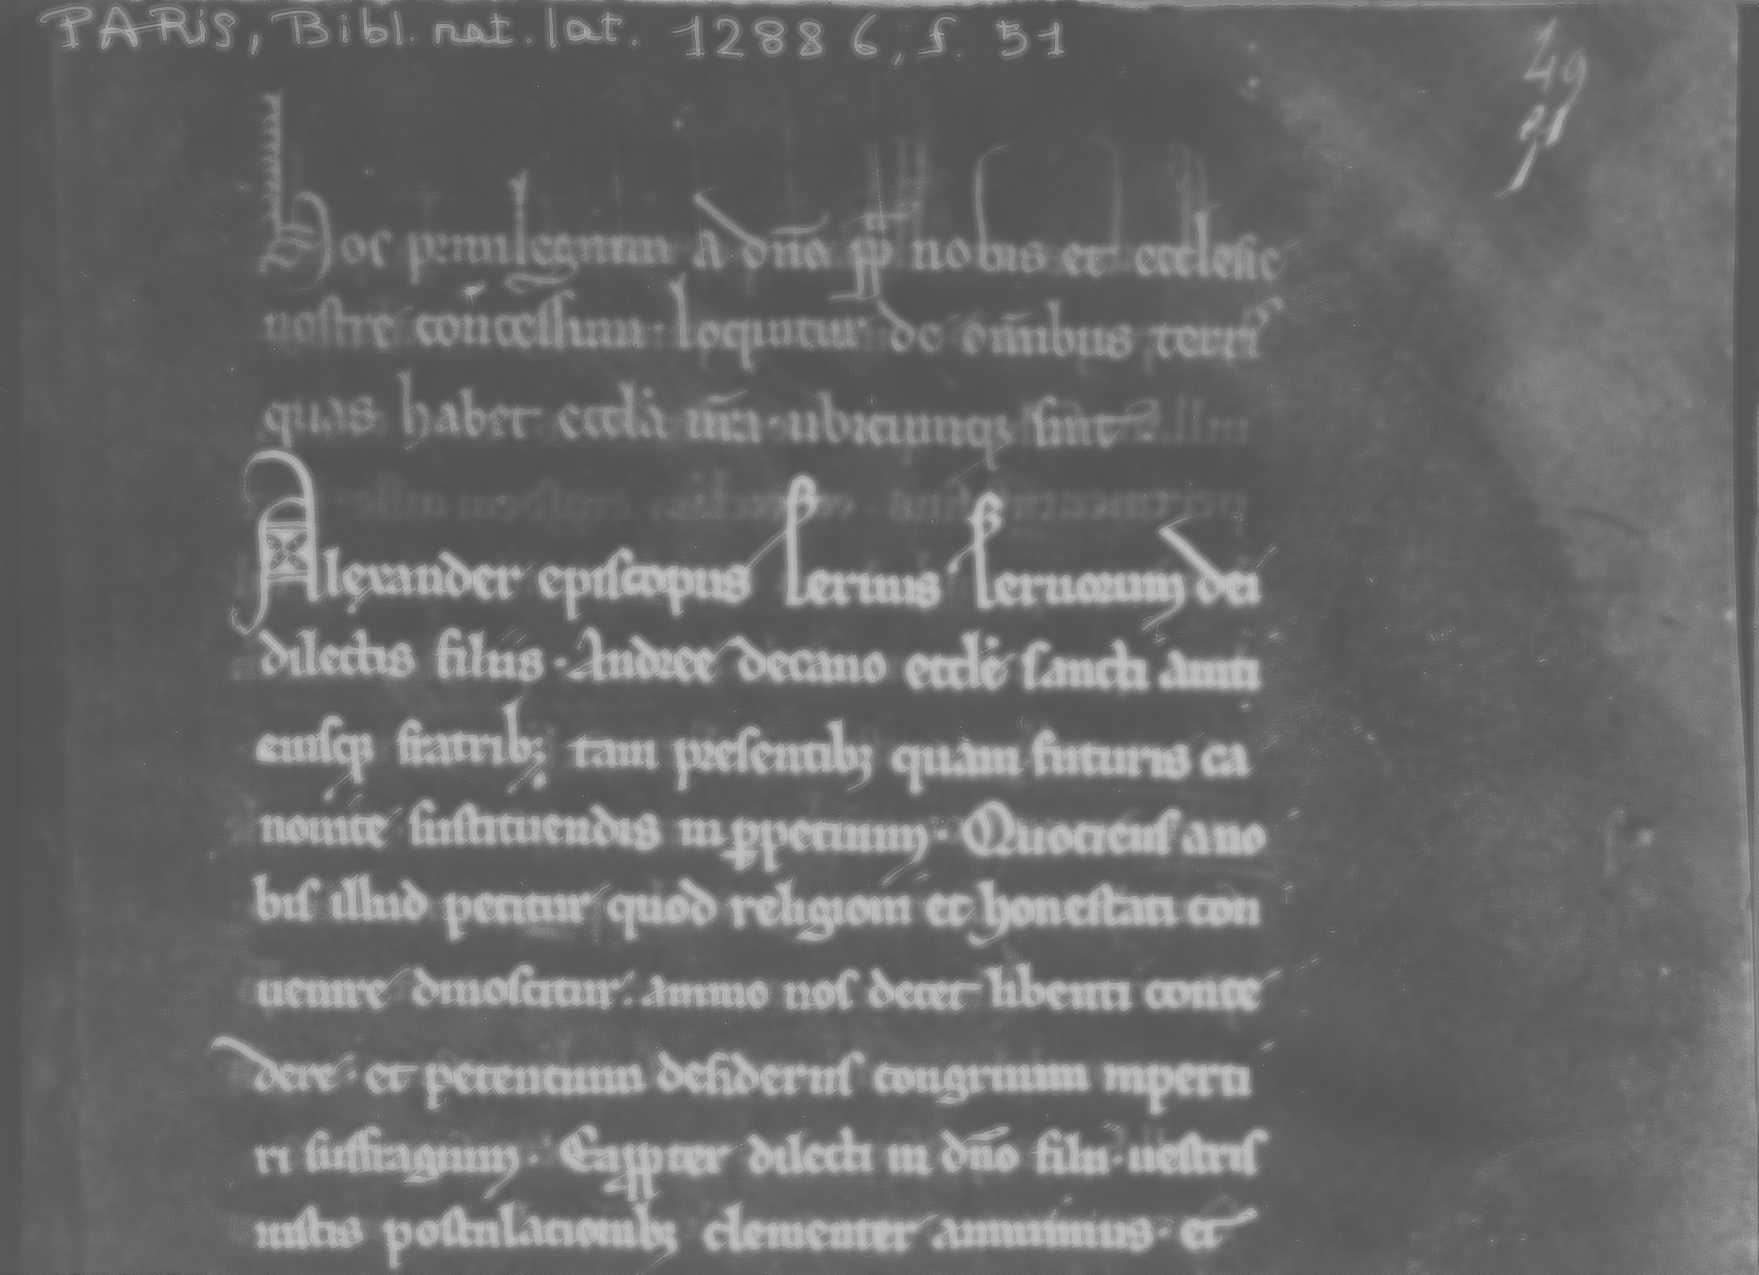 PARIS, Bibl. nat. lat. 12886, f. 51
49
51
Hoc priuilegium a dn̄o pp̄ nobis et ecclesie
nostre concessum· loquitur de om̄ibus terris
quas habet eccl̄a nr̄a· ubicunq; sint·
Alexander episcopus seruus seruorum dei
dilectis filiis· Andree decano eccl̄e sancti aniti
eiusq; fratrib; tam presentib; quam futuris ca
nonice sustituendis in ꝑpetuum· Quociens a no
bis illud petitur quod religioni et honestati con
uenire dinoscitur· animo nos decet libenti conce
dere· et petentium desideriis congruum inperti
ri suffragium· Eapp̱ter dilecti in dn̄o filii· uestris
iustis postulationib; clementer annuimus· et